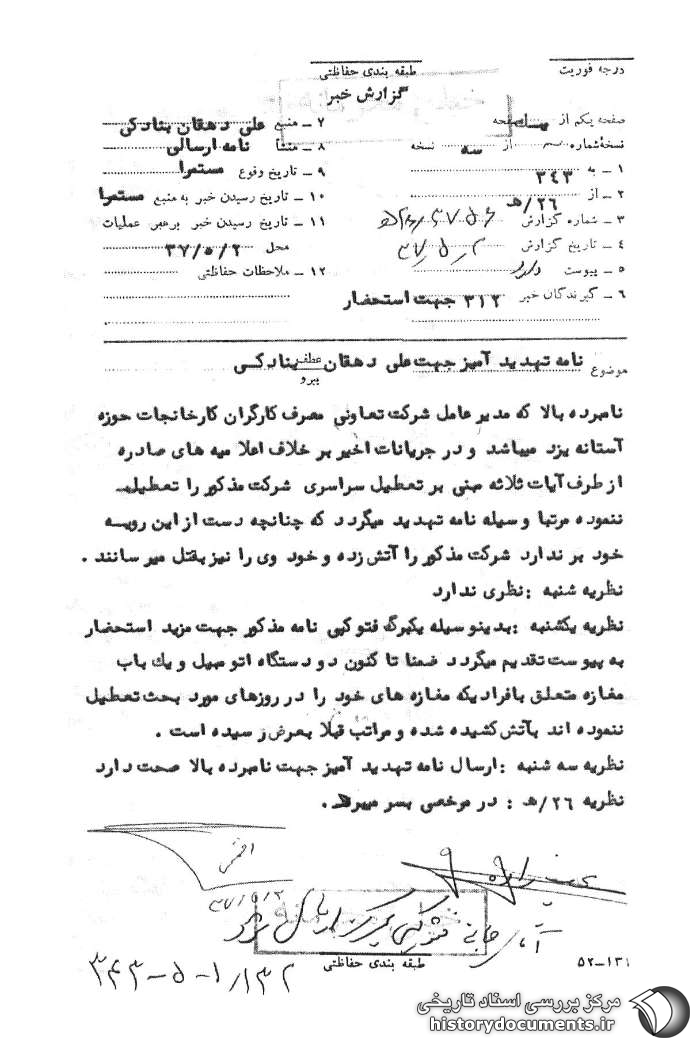 درجه فوریت
طبقه بندی حفاظتی
گزارش خبر
صفحه یکم از یک صفحه
نسخه شماره از سه نسخه
۱ ـ به ۳۴۳
۲ ـ از ۲۶/ه‍
۳ ـ شماره گزارش
۴ ـ تاریخ گزارش
۵ ـ پیوست دارد
۶ ـ گیرندگان خبر ۳۱۲ جهت استحضار
۷ ـ منبع علی دهقان بنادکی
۸ ـ منشأ نامه ارسالی
۹ ـ تاریخ وقوع مستمرا
۱۰ ـ تاریخ رسیدن خبر به منبع مستمرا
۱۱ ـ تاریخ رسیدن خبر برهبر عملیات
محل ۳۷/۵/۲
۱۲ ـ ملاحظات حفاظتی
موضوع نامه تهدید آمیز جهت علی دهقان بنادکی
عطف
پیرو
نامبرده بالا که مدیر عامل شرکت تعاونی مصرف کارگران کارخانجات حوزه
آستانه یزد میباشد و در جریانات اخیر بر خلاف اعلامیه های صادره
از طرف آیات ثلاثه مبنی بر تعطیل سراسری شرکت مذکور را تعطیل
ننموده مرتبا وسیله نامه تهدید میگردد که چنانچه دست از این رویسه
خود بر ندارد شرکت مذکور را آتش زده و خود وی را نیز بقتل میرسانند .
نظریه شنبه : نظری ندارد
نظریه یکشنبه : بدینوسیله یکبرگ فتوکپی نامه مذکور جهت مزید استحضار
به پیوست تقدیم میگردد ضمنا تا کنون دو دستگاه اتومبیل و یك باب
مغازه متعلق بافرادیکه مغازه های خود را در روزهای مورد بحث تعطیل
ننموده اند بآتش کشیده شده و مراتب قبلا بعرض رسیده است .
نظریه سه شنبه : ارسال نامه تهدید آمیز جهت نامبرده بالا صحت دارد
نظریه ۲۶/ه‍ : در مرخصی بسر میبرد .
۳۷/۵/۲
طبقه بندی حفاظتی
۵۲ـ۱۳۱
۳۴۳-۵-۱/۱۳۲
مرکز بررسی اسناد تاریخی
historydocuments.ir